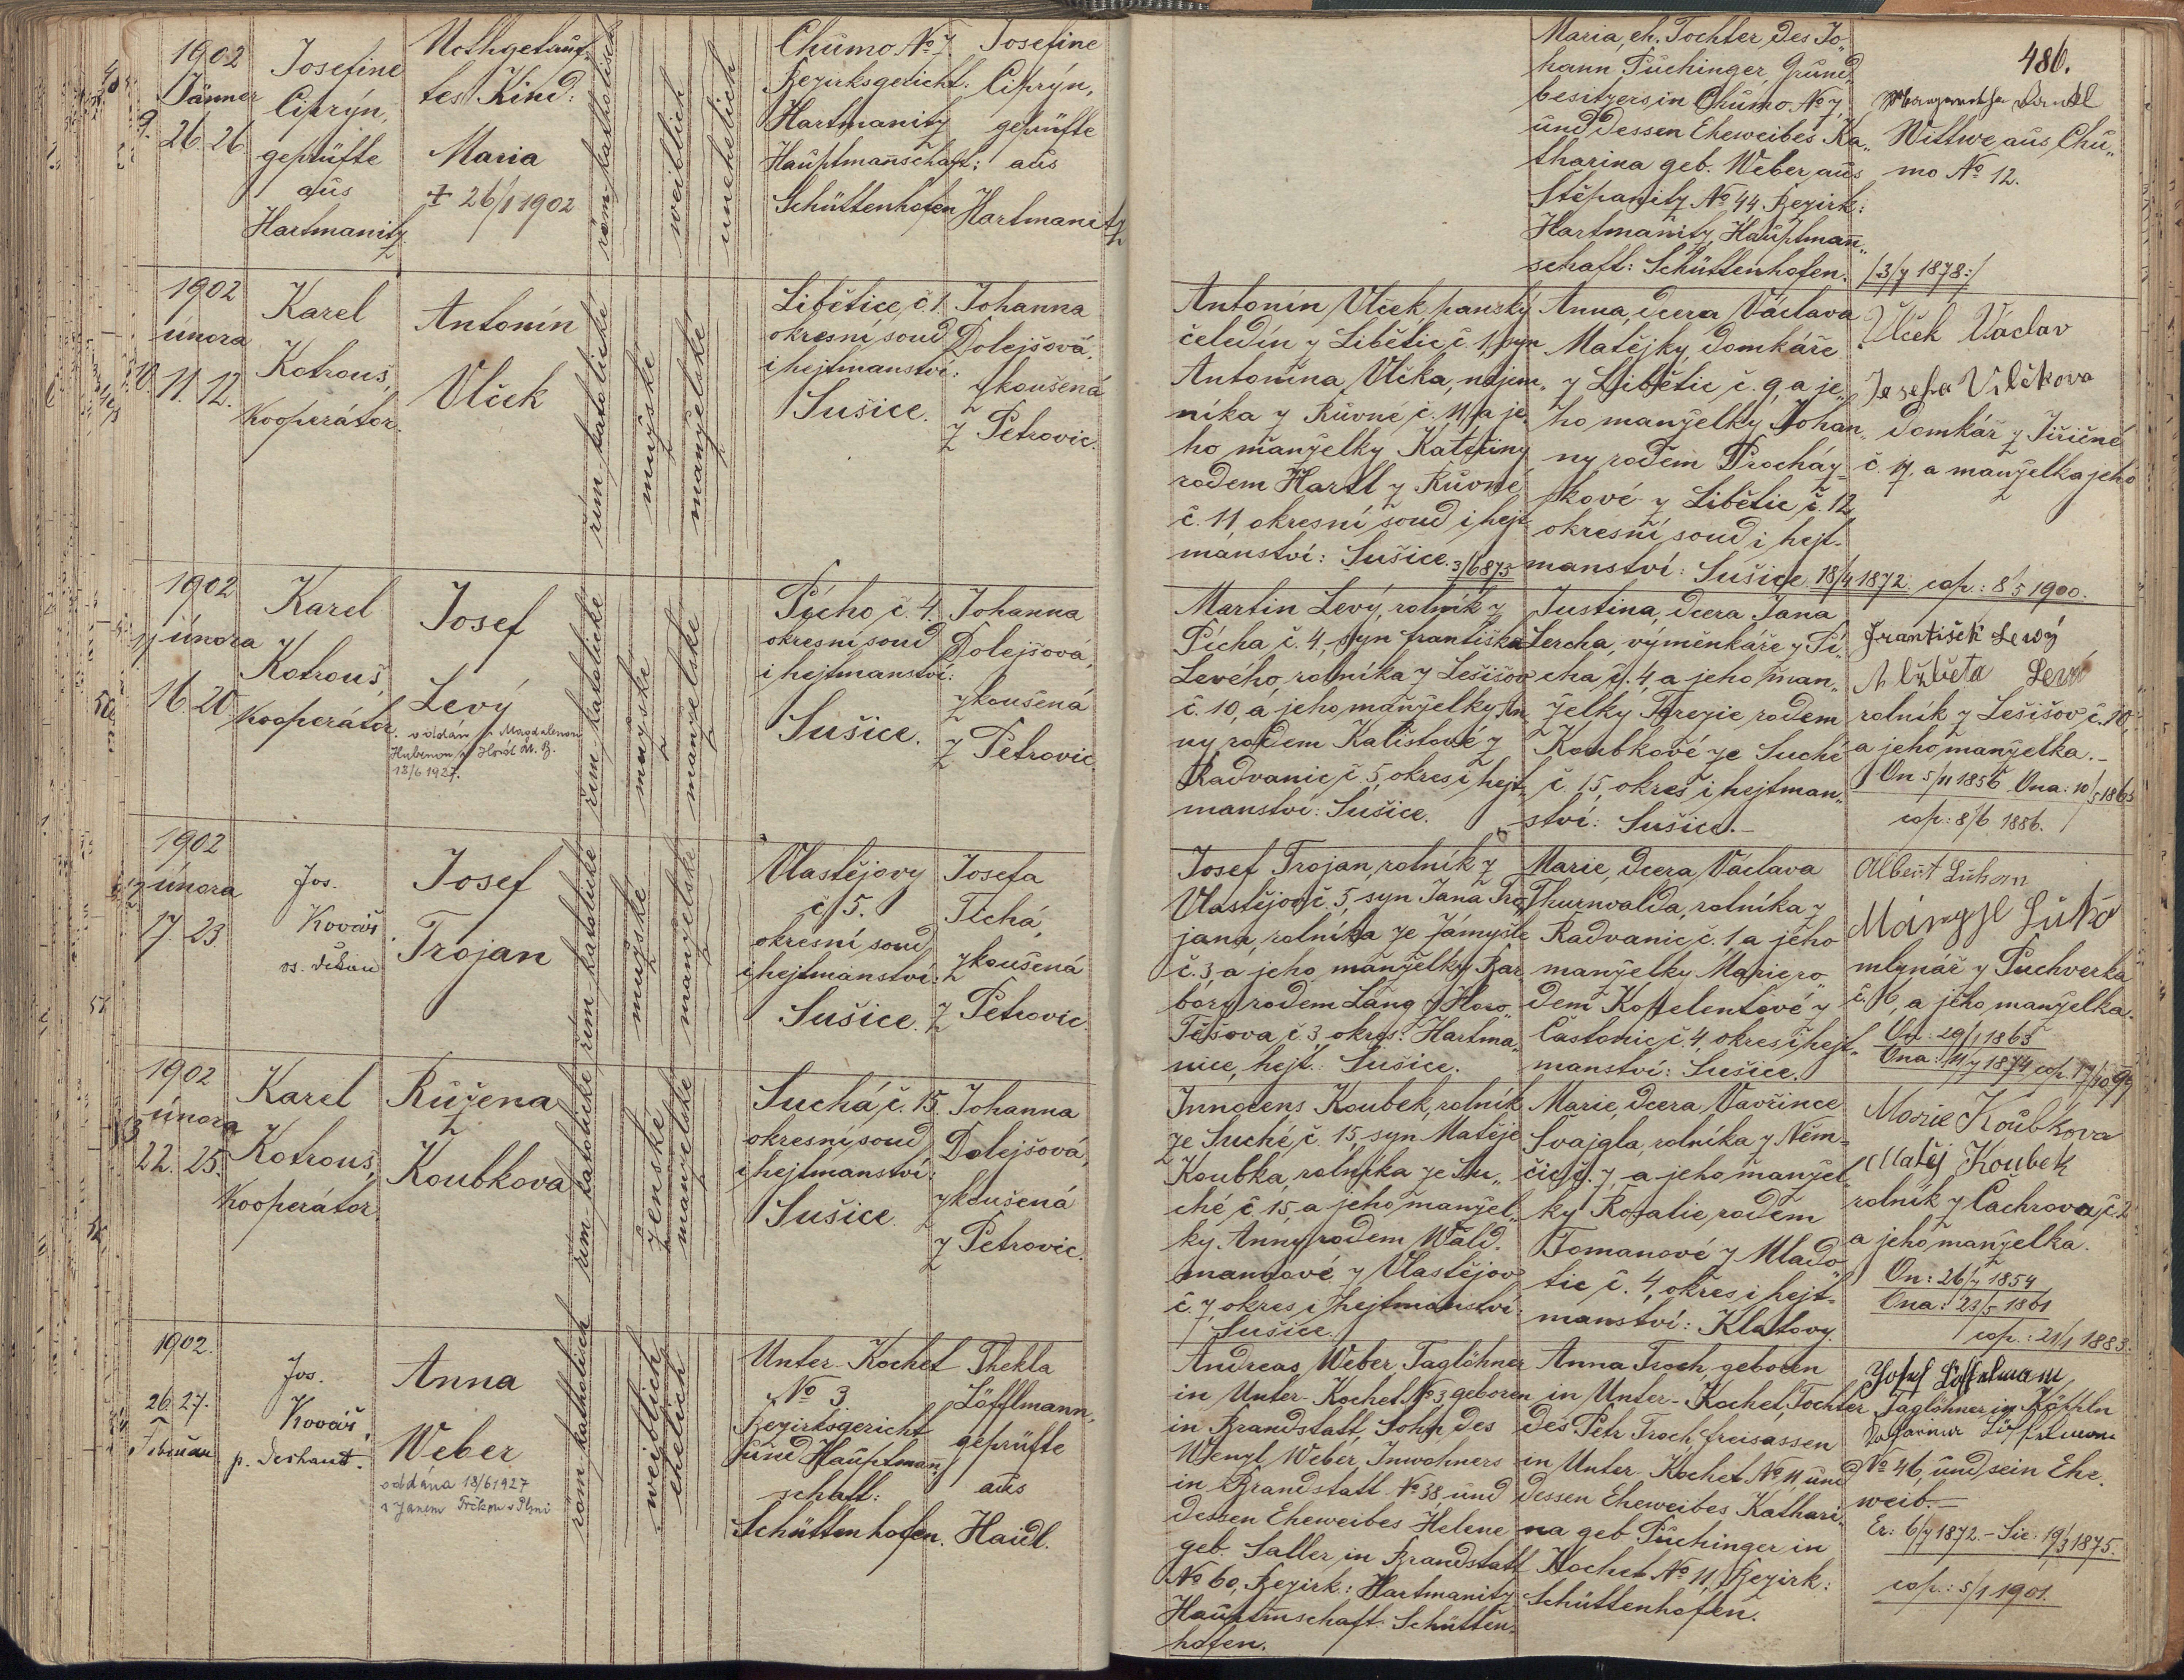 1902
Jänner
9.
26. 26
Josefine
Ciprýn,
geprüfte
aus
Hartmanitz
Nothgetauf-
tes Kind:
Maria
+ 26/1 1902
röm-katholisch
weiblich
unehelich
Chumo. No 7.
Bezirksgericht:
Hartmanitz
Hauptmannschaft:
Schüttenhofen
Josefine
Ciprýn,
geprüfte
aus
Hartmanitz
Maria, eh. Tochter des Jo-
hann Puchinger, Grund-
besitzers in Chumo. No 7,
und dessen Eheweibes Ka-
tharina geb. Weber aus
Stěpanitz No 44. Bezirk:
Hartmanitz, Hauptmann-
schaft: Schüttenhofen.
/3/7 1878:/
486.
Wittwe, aus Chu-
mo No 12.
1902
února
10.
11. 12.
Karel
Kotrouš,
Kooperátor.
Antonín
Vlček
řím-katolické
mužské
manželské
Libětice, č. 1.
okresní soud
i hejtmanství:
Sušice.
Johanna
Dolejšová,
zkoušená
z Petrovic.
Antonín Vlček, panský
čeledín z Libětic č. 1, syn
Antonína Vlčka, nájem-
níka z Kůvné č. 11, a je-
ho manželky Kateřiny
rodem Hartl z Kůvné
č. 11, okresní soud i hejt-
manství: Sušice. 3/6 873
Anna, dcera Václava
Matějky, domkáře
z Libětic č. 9, a je-
ho manželky Johan-
ny rodem Procház-
kové z Libětic, č. 12,
okresní soud i hejt-
manství: Sušice. 18/4 1872. cop.: 8/5 1900.
Vlček Václav
Josefa Vlčkova
domkář z Jiřičné
č. 17. a manželka jeho
1902
11 února
16. 20
Karel
Kotrouš,
Kooperátor.
Josef
Levý
oddán s Magdalenou
12/6 1927.
řím-katolické
mužské
manželské
Pícho, č. 4.
okresní soud
i hejtmanství:
Sušice.
Johanna
Dolejšová,
zkoušená
z Petrovic
Martin Levý, rolník z
Pícha č. 4, syn Františka
Levého, rolníka z Lešišov
č. 10, a jeho manželky An-
ny rodem Kalistové z
Radvanic č. 5, okres i hejt-
manství: Sušice.
Justina, dcera Jana
Lercha, výměnkáře z Pí-
cha, č. 4, a jeho man-
želky Terezie rodem
Koubkové ze Suché
č. 15, okres i hejtman-
ství: Sušice.
František Levý
Alžběta Levá
rolník z Lešišov č. 10,
a jeho manželka.
On 5/11 1856 Ona: 10/5 1863
cop: 8/6 1886.
1902
12 února
17. 23
Jos.
Kovář
os. děkan
Josef
Trojan
řím-katolické
mužské
manželské
Vlastějovy
č. 5.
okresní soud
i hejtmanství:
Sušice.
Josefa
Tichá,
zkoušená
z Petrovic
Josef Trojan, rolník z
Vlastějov č. 5, syn Jana Tro-
jana, rolníka ze Zámyšle
č. 3, a jeho manželky Bar-
bory rodem Lang z Horo-
Těšova, č. 3, okres: Hartma-
nice, hejt.: Sušice.
Marie, dcera Václava
Thurnvalda, rolníka z
Radvanic č. 1 a jeho
manželky Marie, ro-
dem Kopelentové z
Častonic č. 4, okres i hejt-
manství: Sušice.
Albert
mlynář z Puchverka
č. 16, a jeho manželka.
On: 29/1 1863
Ona: 11/7 1874 cop. 17/10 97
1902
13 února
22. 25.
Karel
Kotrouš,
Kooperátor
Růžena
Koubkova
řím-katolické
ženské
manželské
Suchá, č. 15.
okresní soud
i hejtmanství:
Sušice.
Johanna
Dolejšová,
zkoušená
z Petrovic.
Innocens Koubek, rolník
ze Suché, č. 15, syn Matěje
Koubka, rolníka ze Su-
ché č. 15, a jeho manžel-
ky Anny rodem Wald-
mannové z Vlastějov
č. 7, okres i hejtmanství:
Sušice.
Marie, dcera Vavřince
Švajgla, rolníka z Něm-
čic, č. 7, a jeho manžel-
ky Rosalie, rodem
Tomanové z Mlado-
tic č. 4, okres i hejt-
manství: Klatovy.
Marie Koubkova
Matěj Koubek
rolník z Čachrova, č. 2
a jeho manželka.
On: 26/7 1854
Ona: 23/5 1861
cop.: 21/1 1883.
1902.
26. 27.
Februar
Jos.
Kovář,
p. Dechant.
Anna
Weber
oddána 18/6 1927
s Janem Trčkou v Plzni
röm-katholich
weiblich
ehelich
Unter-Kochet
No 3.
Bezirksgericht
und Hauptman-
schaft:
Schüttenhofen.
Thekla
Löfflmann,
geprüfte
aus
Haidl.
Andreas Weber, Taglöhner
in Unter-Kochet No 3, geboren
in Brandstatt, Sohn des
Wenzl Weber, Inwohners
in Brandstatt No 38, und
dessen Eheweibes Helene
geb. Saller, in Brandstatt
No 60, Bezirk: Hartmanitz
Hauptmschaft: Schütten-
hofen.
Anna Troch, geboren
in Unter-Kochet, Tochter
des Petr Troch, freisassen
in Unter-Kochet No 11, und
dessen Eheweibes Kathari-
na geb. Puchinger in
Kochet No 11, Bezirk:
Schüttenhofen.
Josef Löffelmann,
Taglöhner in
No 46, und sein Ehe-
weib.
Er: 6/7 1872. - Sie: 19/3 1875.
cop.: 5/1 1901.